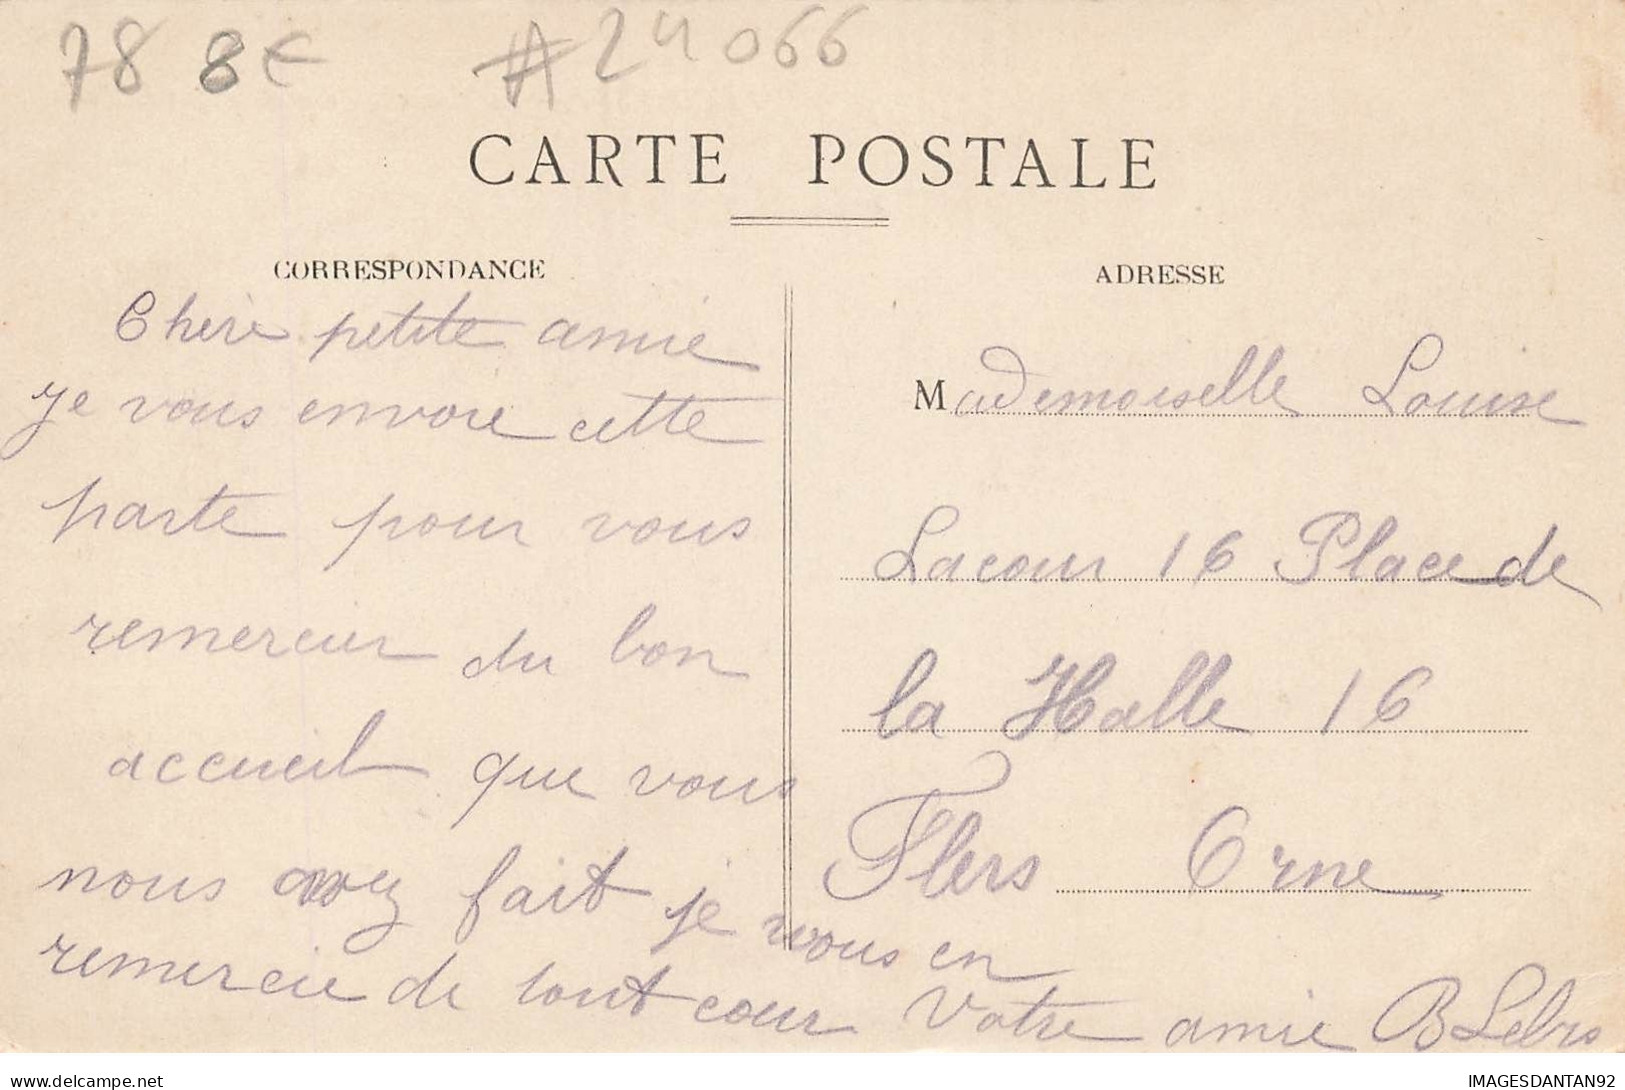 78 8€ #24066
CARTE POSTALE
CORRESPONDANCE
Chère petite amie
je vous envoie cette
parte pour vous
remercier du bon
accueil que vous
nous avez fait je vous en
remercie de tout cœur Votre amie B
ADRESSE
Mademoiselle Louise
Lacour 16 Place de
la Halle 16
Flers Orne
delcampe.net
IMAGESDANTAN92